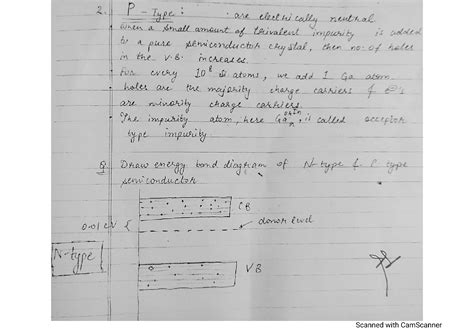 2. P - Type : are electrically neutral
When a small amount of trivalent impurity is added
to a pure semiconductor crystal, then no. of holes
in the V.B. increases.
For every 10⁸ Si atoms, we add 1 Ga atom
holes are the majority charge carriers & e⁻'s
are minority charge carriers
The impurity atom, here Ga, is called acceptor
type impurity
Q Draw energy bond diagram of N-type & P type
semiconductor
CB
0.01 eV { donor level
N-type
V B
Scanned with CamScanner